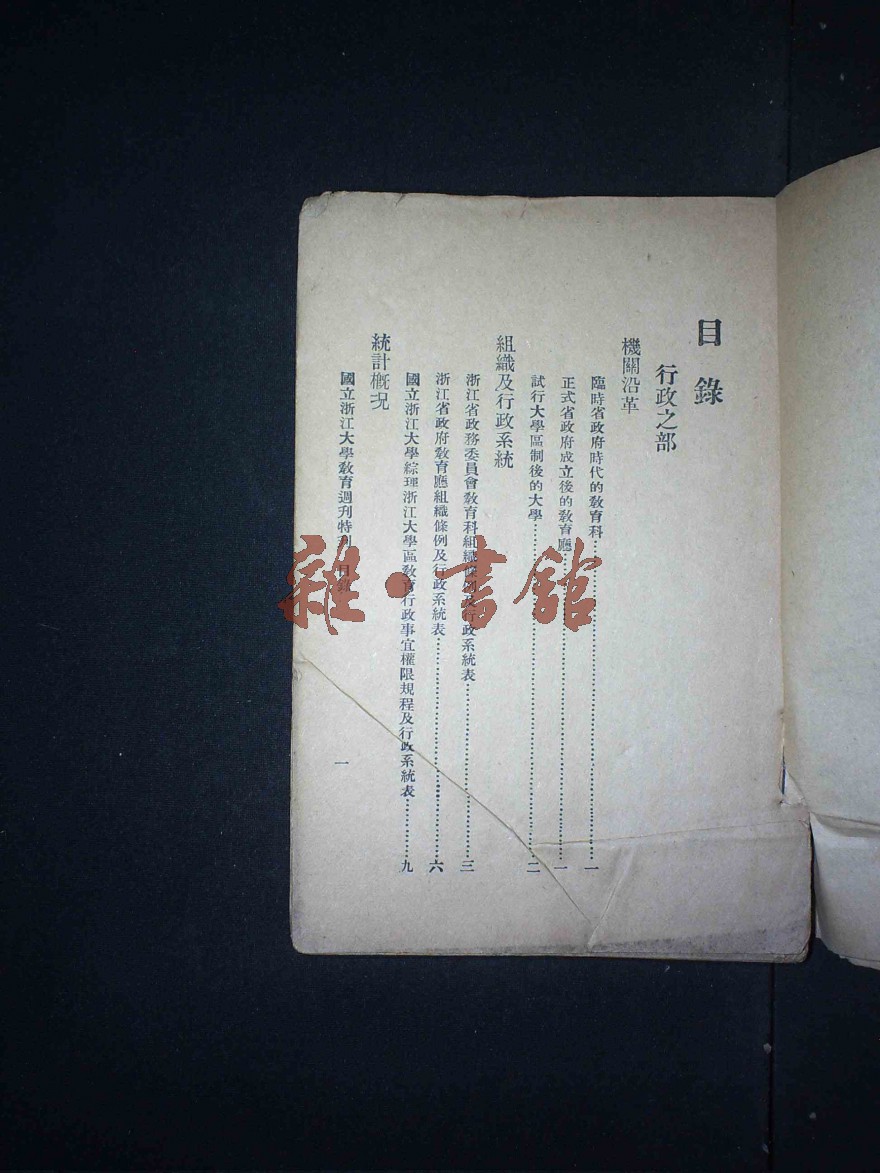 目錄
行政之部
機關沿革
臨時省政府時代的敎育科……一
正式省政府成立後的敎育廳……一
試行大學區制後的大學……二
組織及行政系統
浙江省政務委員會敎育科組織條例及行政系統表……三
浙江省政府敎育廳組織條例及行政系統表……六
國立浙江大學綜理浙江大學區敎育行政事宜權限規程及行政系統表……九
統計概况
國立浙江大學敎育週刊特刊 目錄 一
雜·書館